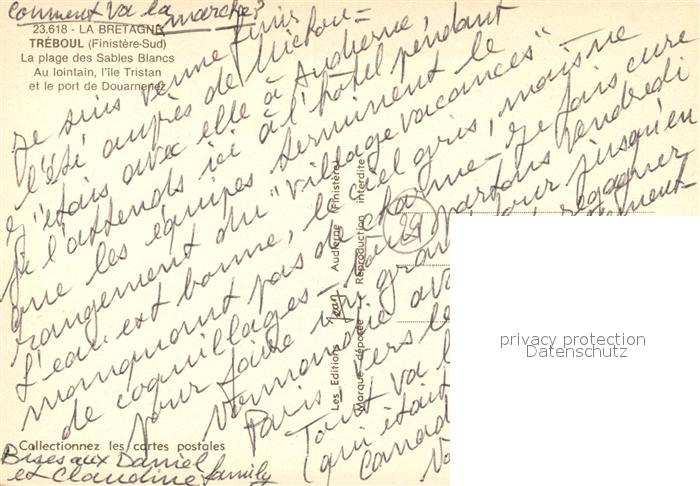 Comment va la
marche?
23.618 - LA BRETAGNE
TRÉBOUL (Finistère-Sud)
La plage des Sables Blancs
Au lointain, l'île Tristan
et le port de Douarnenez
Je suis venue finir
l'été auprès de Michou =
j'étais avec elle à Audierne,
je l'attends ici à l'hôtel pendant
que les équipes terminent le
rangement du "village vacances"
L'eau est bonne, le ciel gris, mais ne
manquent pas de charme - je fais cure
de coquillages - nous partons vendredi
pour faire un grand tour jusqu'en
Normandie avant regagner
Paris vers le
Tout va
(qui était
Canad
Les Editions Jean Audierne (Finistère)
Marque déposée Reproduction interdite
29
Collectionnez les cartes postales
Bises aux Daniel
et Claudine family
privacy protection
Datenschutz